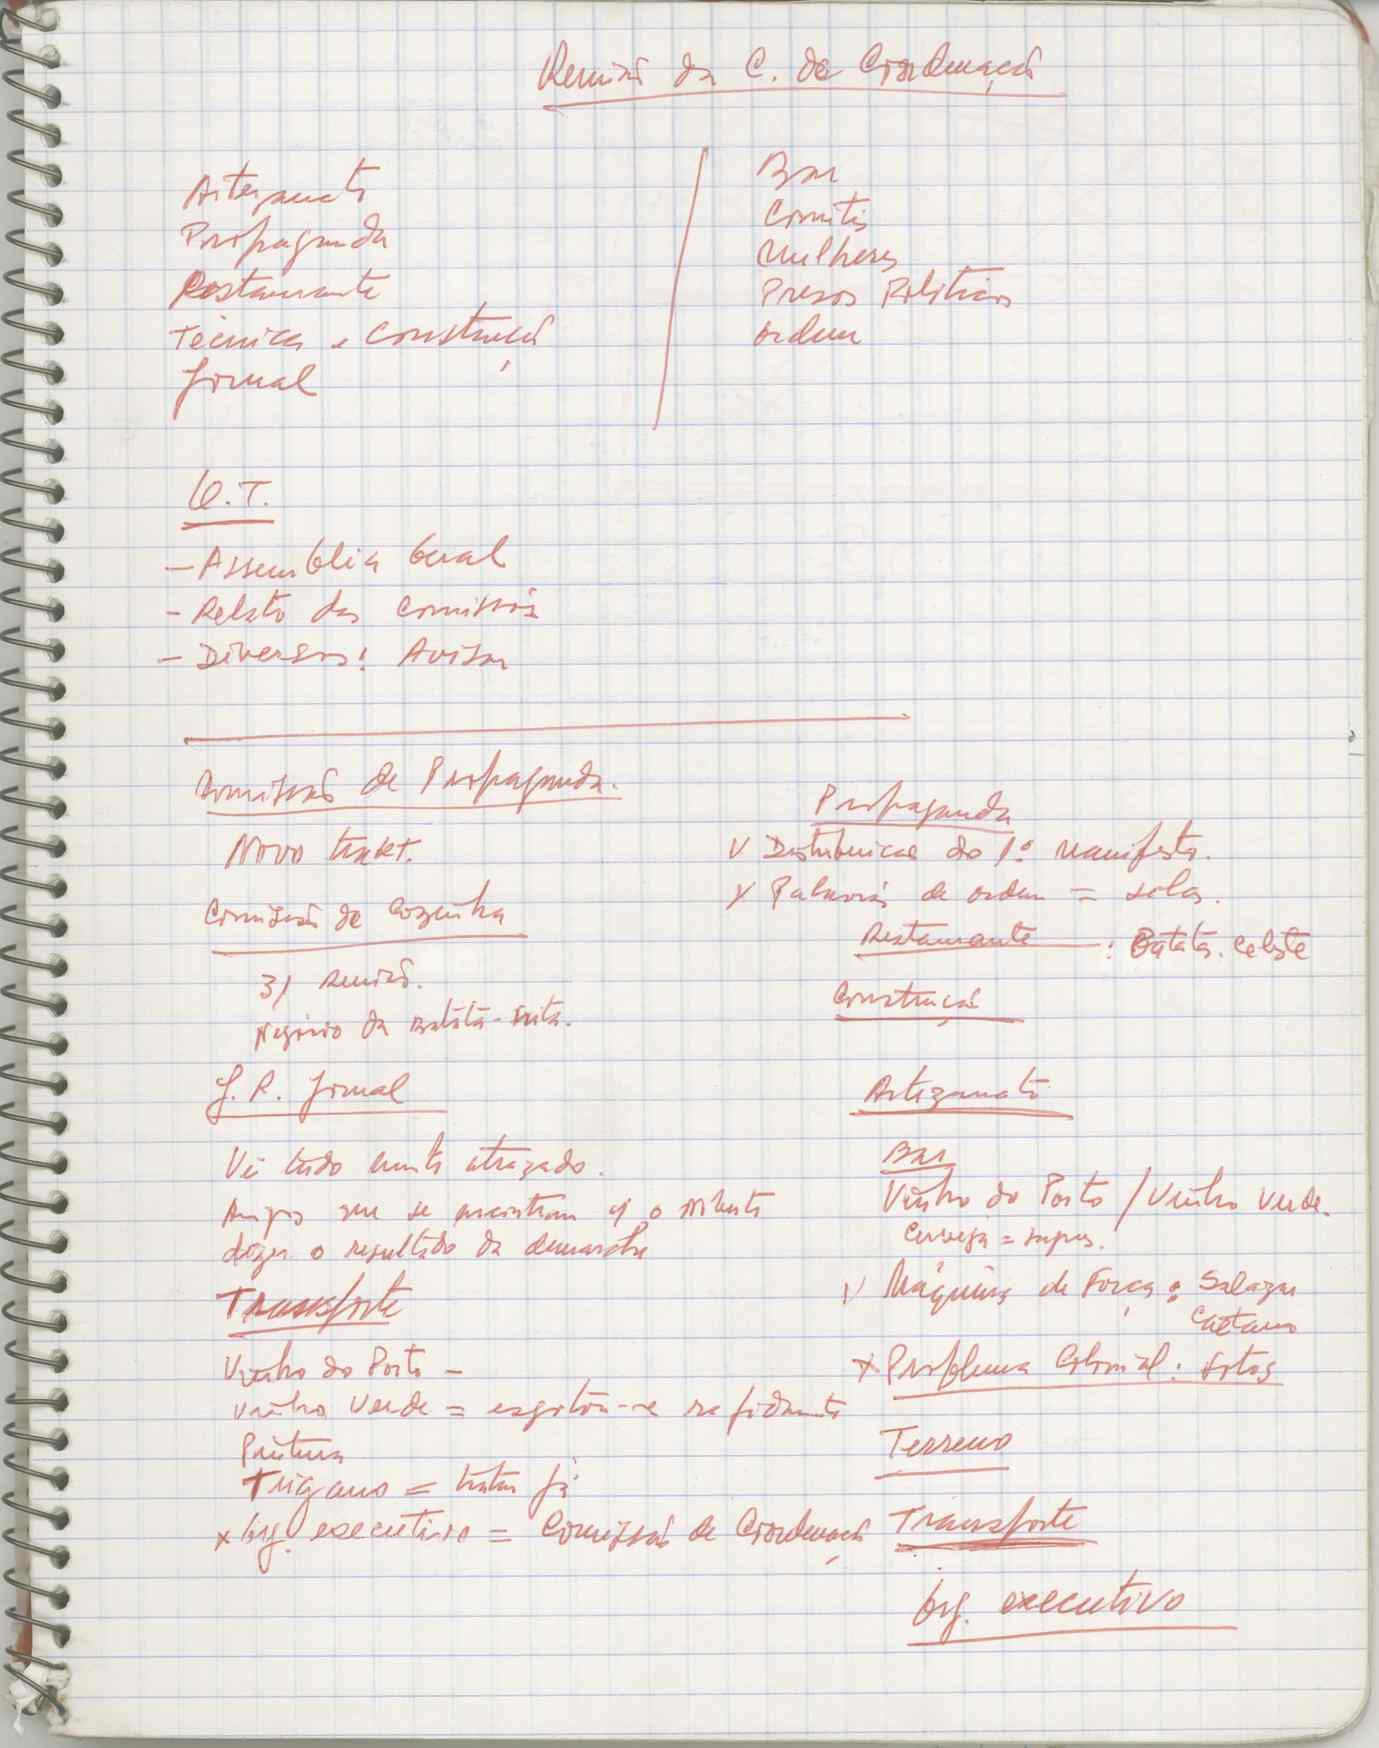 Reunião da C. de Coordenação
Artezanato
Propaganda
Restaurante
Técnica e Construção
Jornal
Bar
Comités
Mulheres
Presos Politicos
Ordem
O.T.
- Assembleia Geral
- Relato das Comissões
- Diversos: Avisar
Comissão de Propaganda.
Novo trakt.
Comissão de Cozinha
3) Reunião.
Negócio da Batata-frita.
J.R. Jornal
Vê tudo muito atrazado.
Amigos que se encontram c/ o
dizer o resultado da demarche
Transporte
Vinho do Porto -
Vinho Verde = esgotou-se rapidamente
Pintura
Trigano = tratar já
x Org. executivo = Comissão de Coordenação
Propaganda
V Distribuicao do 1º manifesto.
x Palavras de ordem = selos.
Restaurante : Batatas. Celeste
Construção
Artezanato
Bar
Vinho do Porto / Vinho Verde.
Cerveja = supres.
V Máquina de Força : Salazar
Caetano
x Problema Colonial : fotos
Terreno
Transporte
Org. executivo